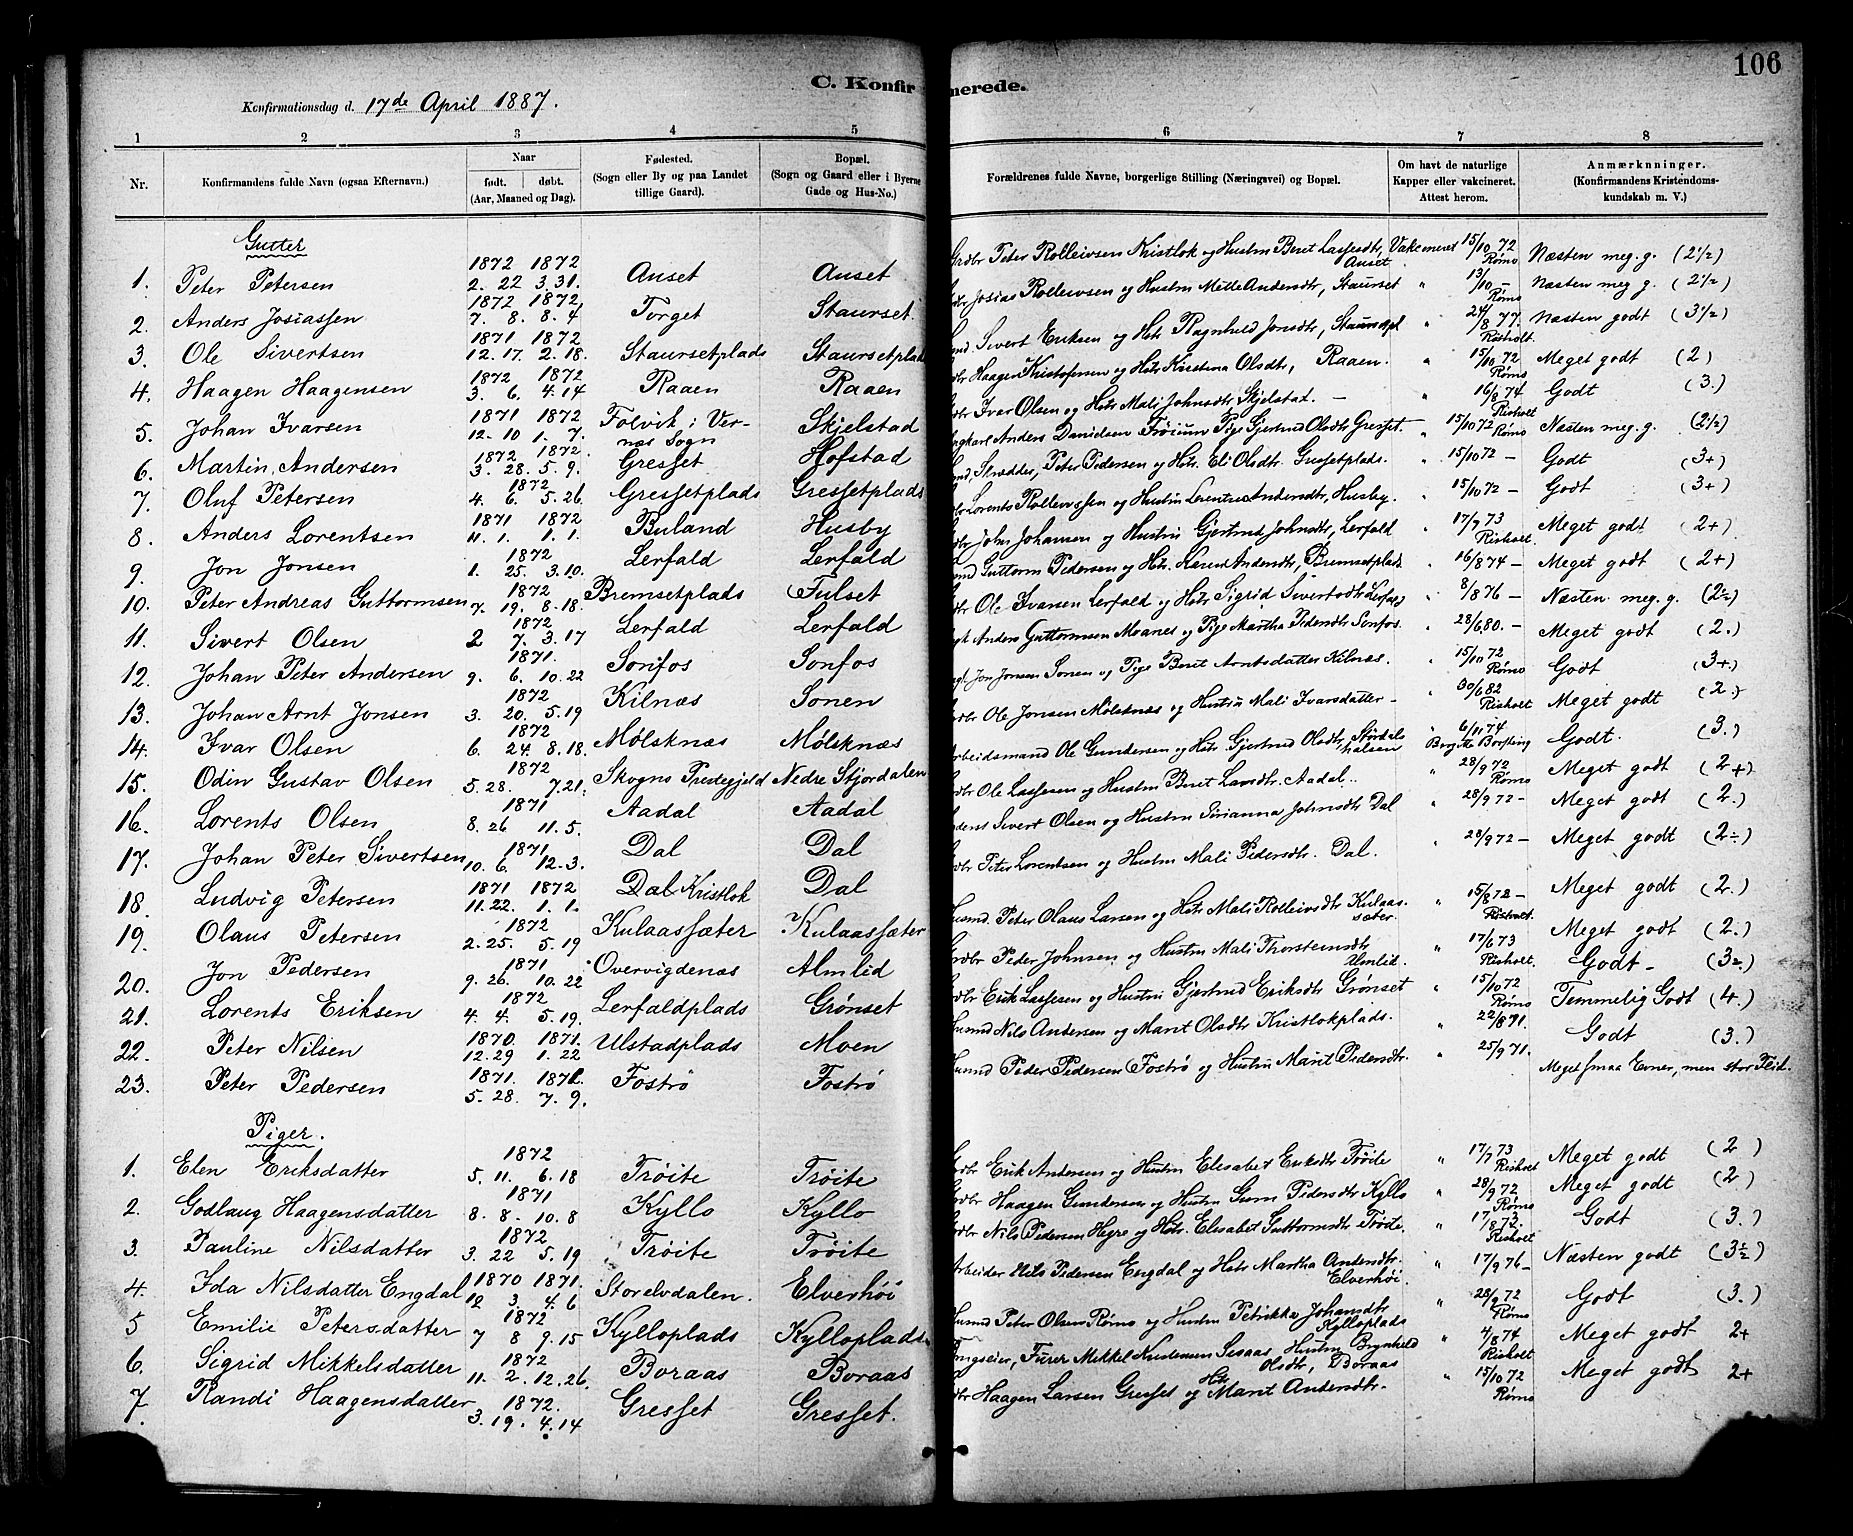 106
C. Konfirmerede.
Konfirmationsdag d. 17de April 1887.
1 2 3 4 5 6 7 8
Nr. Konfirmandens fulde Navn (ogsaa Efternavn.) Naar født. døbt. (Aar, Maaned og Dag). Fødested. (Sogn eller By og paa Landet tillige Gaard). Bopæl. (Sogn og Gaard eller i Byerne Gade og Hus-No.) Forældrenes fulde Navne, borgerlige Stilling (Næringsvei) og Bopæl. Om havt de naturlige Kapper eller vakcineret. Attest herom. Anmærknninger. (Konfirmandens Kristendomskundskab m. V.)
Gutter
1. Peter Petersen 1872 2. 22 1872 3. 31. Auset Auset Peter Rolleivsen Kristlok og Hustru Berit Lassesdtr, Auset Vakcineret 15/10 72 Rømo Næsten meg. g. (2½)
2. Anders Josiassen 1872 7. 8. 1872 8. 4 Torget Staurset. Josias Rolleivsen og Hustru Mette Andersdtr, Staurset " 13/10 - Rømo Næsten meg g. (2½)
3. Ole Sivertsen 1871 12. 17. 1872 2. 18. Staursetplads Staursetplads Sivert Eriksen og Hstr Ragnhild Jonsdtr, Staursetpl " 24/8 77. Risholt. Næsten godt (3½)
4. Haagen Haagensen 1872 3. 6. 1872 4. 14 Raaen Raaen Haagen Kristofersen og Hstr Kirstina Olsdt, Raaen. " 15/10 72 Rømo Meget godt (2)
5. Johan Ivarsen 1871 12. 10 1872 1. 7. Folvik i Vernæs Sogn Skjelstad Ivar Olsen og Hstr Mali Johnsdtr Skjelstad. - " 16/8 74 Risholt Godt (3.)
6. Martin Andersen 1872 3. 28. 1872. 5. 9. Gresset Hofstad Anders Danielsen Frøium Pige Gjertrud Olsdtr Gresset. " 15/10 72 Rømo Næsten meg. g. (2½)
7. Oluf Petersen 1872 4. 6. 5. 26. Gressetplads Gressetplads Skrædder, Peter Pedersen og Hstr. Eli Olsdtr. Gressetplads. " 15/10 72 - Godt (3+)
8. Anders Lorentsen 1871 11. 1. 1872 1. 1. Buland Husby Lorents Rolleivssen og Hustru Lorentse Andersdtr, Husby. " 15/10 72 - Godt (3+)
9. Jon Jonsen 1872 1. 25. 3. 10. Lerfald Lerfald John Johansen og Hustru Gjertrud Johnsdtr, Lerfald " 17/9 73 Risholt. Meget godt (2+)
10. Peter Andreas Guttormsen 1872 7. 19. 8. 18. Bremsetplads Fulset Guttorm Pedersen og Hstr. Karen Andersdtr, Bremsetplads " 16/8 74 - Meget godt (2+)
11. Sivert Olsen 1872 2 7. 3. 17 Lerfald Lerfald Ole Ivarsen Lerfald og Hstr Sigrid Sivertsdtr Lerfald " 8/8 76 - Næsten meg. g. (2½)
12. Johan Peter Andersen 1871. 9. 6. 10. 22 Sonfos Sonfos Anders Guttormsen Moanes og Pige Martha Pedersdtr Sonfos. " 28/6 80. - Meget godt (2.)
13. Johan Arnt Jonsen 1872 3. 20. 5. 19 Kilnæs Sonen Jon Jonsen Sonen og Pige Berit Arntsdatter Kilnæs. " 15/10 72 Rømo Godt (3+)
14. Ivar Olsen 1872 6. 24. 8. 18. Mølsknæs Mølsknæs Ole Jonsen Mølsknæs og Hustru Mali Ivarsdatter - " 30/6 82 Risholt Meget godt (2.)
15. Odin Gustav Olsen 1872 5. 28. 7. 21. Skogns Prestegjeld Nedre Stjørdalen Arbeidsmand Ole Gundersen og Hstr Gjertrud Olsdtr, Stjørdalshalsen " 6/11 74 Borgitte Borsting Godt. (3.)
16. Lorents Olsen 1871 8. 26 11. 5. Aadal Aadal Ole Lassesen og Hustru Berit Larsdtr. Aadal. " 28/9 72 Rømo Meget godt (2+)
17. Johan Peter Sivertsen 1871 10. 6. 12. 3. Dal Dal Sivert Olsen og Hustru Sirianna Johnsdtr Dal " 28/9 72 - Meget godt (2.)
18. Ludvig Petersen 1871 11. 22. 1872 1. 1. Dal Kristlok Dal Peter Lorentsen og Hustru Mali Pedersdtr. Dal. 28/9 72 - Meget godt (2÷)
19. Olaus Petersen 1872 2. 25. 5. 19 Kulaassæter Kulaassæter Husmd. Peter Olaus Larsen og Hstr Mali Rolleivsdtr Kulaassæter. " 15/8 72 - Risholt. Meget godt (2.)
20. Jon Pedersen 1871 9. 26. 10. 22 Overvigdenæs Almlid Peder Johnsen og Hustru Mali Thorsteinsdtr Almlid. " 17/6 73 Risholt. Meget godt (2.)
21. Lorents Eriksen 1872 4. 4. 5. 19. Lerfaldplads Grønset Erik Lassesen og Hustru Gjertrud Eriksdtr Grønset " 15/10 72 Rømo Godt - (3÷)
22. Peter Nilsen 1870 12. 29 1871. 1. 22 Ulstadplads Moen Husmd Nils Andersen og Marit Olsdtr Kristlokplads. " 22/8 71. Temmelig Godt (4.)
23. Peter Pedersen 1871. 5. 28. 1871. 7. 9. Fostrø Fostrø Husmd Peder Pedersen Fostrø og Hustru Marit Pedersdtr. " 25/9 71. Godt (3.)
Meget smaa Evner, men stor Flid.
Piger.
1. Elen Eriksdatter 1872 5. 11. 6. 18 Trøite Trøite Erik Andersen og Hustru Elisabet Eriksdtr Trøite " 17/7 73 Risholt Meget godt (2)
2. Godlaug Haagensdatter 1871 8. 8. 10. 8 Kyllo Kyllo Haagen Gundersen og Hustru Guru Pedersdtr Kyllo " 28/9 72 Rømo Meget godt (2)
3. Pauline Nilsdatter 1872 3. 22 5. 19 Trøite Trøite Nils Pedersen Hegre og Hstr. Elisabet Guttormsdtr Trøite. " 17/8 73. Risholt Godt (3.)
4. Ida Nilsdatter Engdal 1870 12 3. 1871. 4. 6 Storelvdalen. Elverhøi Arbeider Nils Pedersen Engdal og Hstr Martha Andersdtr. Elverhøi. " 17/9 76 - Næsten godt (3½)
5 Emilie Petersdatter 1872 7 8 9. 15 Kylloplads Kylloplads Husmd Peter Olsen Rømo og Hustru Petrikke Johansdtr Kylloplads " 28/9 72 Rømo Godt (3.)
6. Sigrid Mikkelsdatter 1872 11. 2. 12. 26. Boraas Boraas Furer Mikkel Kristensen Sesaas Hustru Brynhild Olsdtr, Boraas " 4/8 74 Risholt Meget godt 2+
7. Randi Haagensdatter 1872. 3. 19. 4. 14 Gresset Gresset. Haagen Larsen Gresset og Hstr Marit Andersdtr. " 15/10 72 Rømo Meget godt 2+